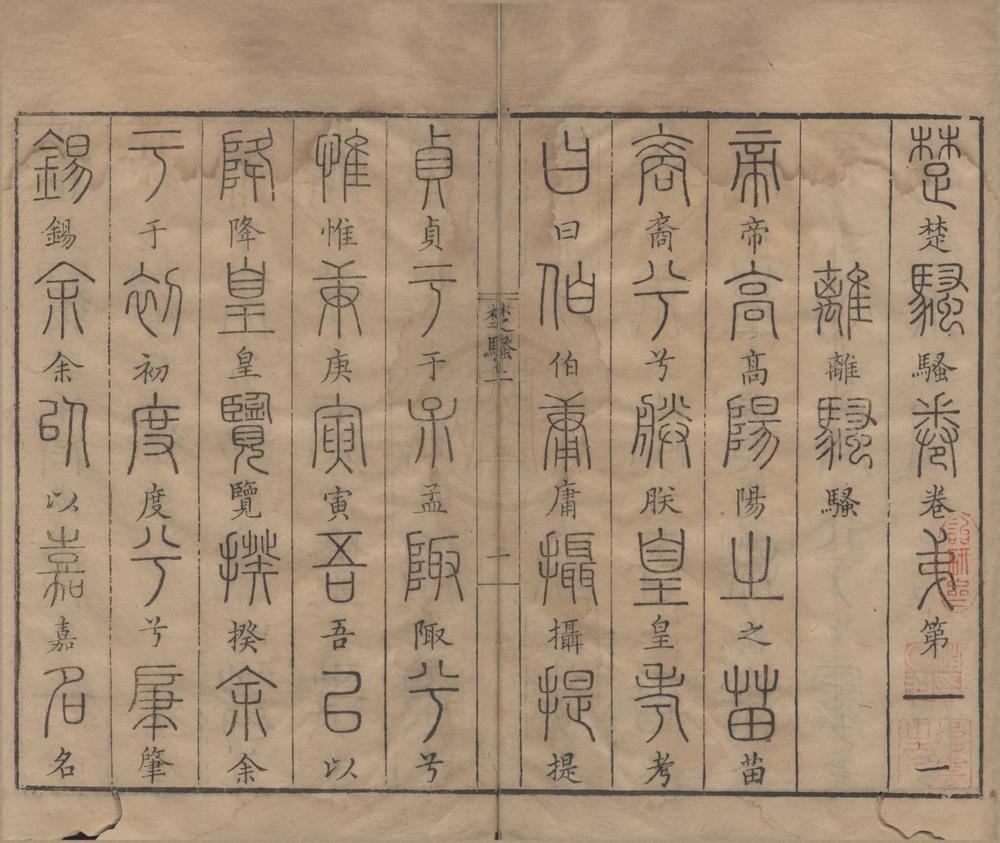 楚楚騷騷卷卷第第一一
離離騷騷
帝帝高高陽陽之之苗苗
裔裔兮兮朕朕皇皇考考
曰曰伯伯庸庸攝攝提提
楚騷上 一
貞貞于于孟孟陬陬兮兮
惟惟庚庚寅寅吾吾以以
降降皇皇覽覽揆揆余余
于于初初度度兮兮肇肇
錫錫余余以以嘉嘉名名